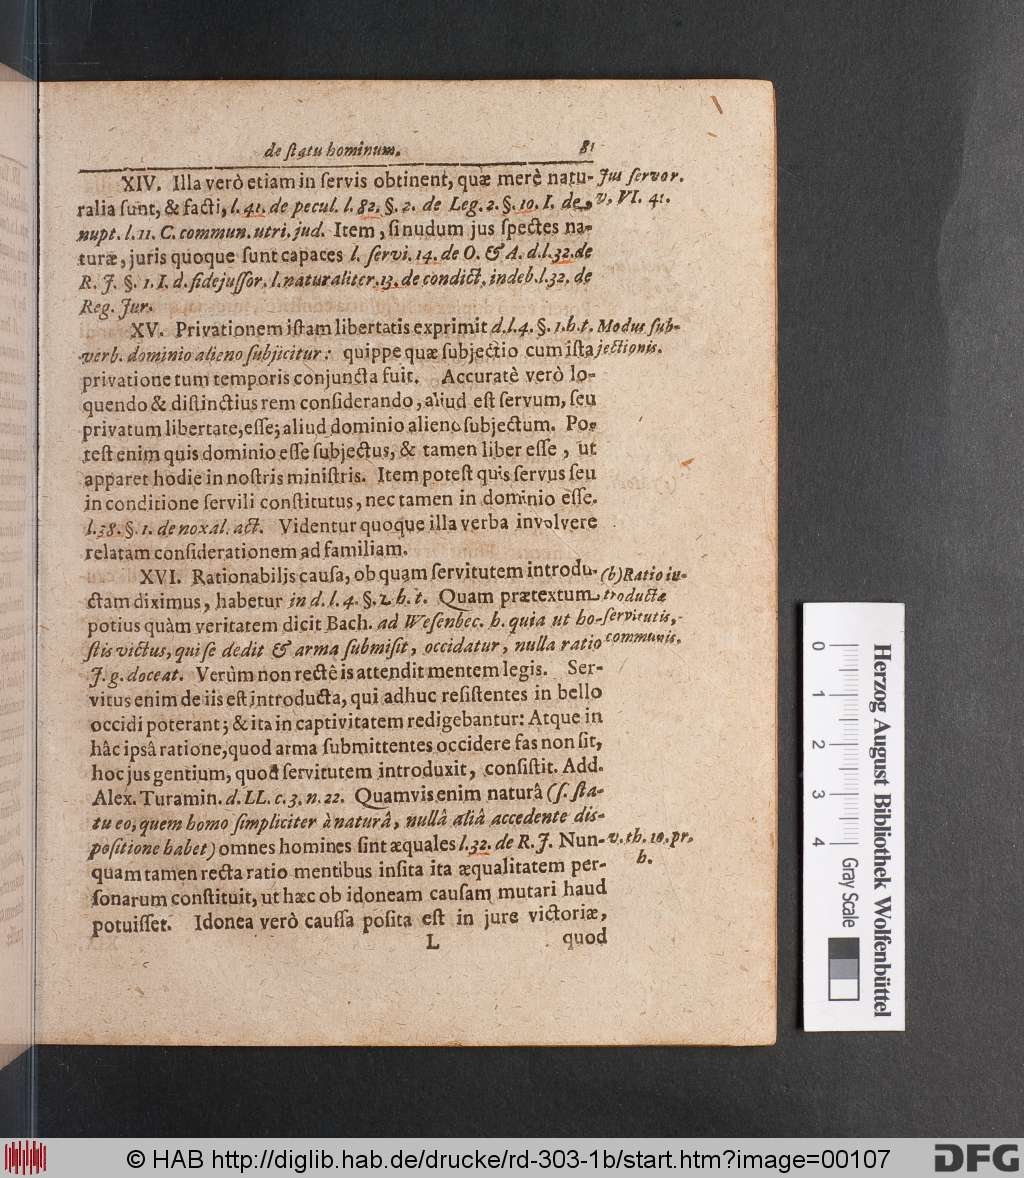 de ſtatu hominum. 81
XIV. Illa verò etiam in ſervis obtinent, quæ merè natu-
ralia ſunt, & facti, l. 41. de pecul. l. 82. §. 2. de Leg. 2. §. 10. I. de
nupt. l. 11. C. commun. utri. jud. Item, ſi nudum jus ſpectes na-
turæ, juris quoque ſunt capaces l. ſervi. 14. de O. & A. d. l. 32. de
R. J. §. 1. I. d. fidejuſſor. l. naturaliter. 13. de condict. indeb. l. 32. de
Reg. Jur.
Jus ſervor.
v. VI. 41.
XV. Privationem iſtam libertatis exprimit d. l. 4. §. 1. h. t.
verb. dominio alieno ſubjicitur: quippe quæ ſubjectio cum iſta
privatione tum temporis conjuncta fuit. Accuratè verò lo-
quendo & diſtinctius rem conſiderando, aliud eſt ſervum, ſeu
privatum libertate, eſſe; aliud dominio alieno ſubjectum. Po-
teſt enim quis dominio eſſe ſubjectus, & tamen liber eſſe, ut
apparet hodie in noſtris miniſtris. Item poteſt quis ſervus ſeu
in conditione ſervili conſtitutus, nec tamen in dominio eſſe.
l. 38. §. 1. de noxal. act. Videntur quoque illa verba involvere
relatam conſiderationem ad familiam.
Modus ſub-
jectionis.
XVI. Rationabilis cauſa, ob quam ſervitutem introdu-
ctam diximus, habetur in d. l. 4. §. 2. h. t. Quam prætextum
potius quàm veritatem dicit Bach. ad Weſenbec. h. quia ut ho-
ſtis victus, qui ſe dedit & arma ſubmiſit, occidatur, nulla ratio
J. g. doceat. Verùm non rectê is attendit mentem legis. Ser-
vitus enim de iis eſt introducta, qui adhuc reſiſtentes in bello
occidi poterant; & ita in captivitatem redigebantur: Atque in
hâc ipsâ ratione, quod arma ſubmittentes occidere fas non ſit,
hoc jus gentium, quod ſervitutem introduxit, conſiſtit. Add.
Alex. Turamin. d. LL. c. 3. n. 22. Quamvis enim naturâ (ſ. ſta-
tu eo, quem homo ſimpliciter à naturâ, nullâ aliâ accedente diſ-
poſitione habet) omnes homines ſint æquales l. 32. de R. J. Nun-
quam tamen recta ratio mentibus inſita ita æqualitatem per-
ſonarum conſtituit, ut hæc ob idoneam cauſam mutari haud
potuiſſet. Idonea verò cauſſa poſita eſt in jure victoriæ,
(b) Ratio in-
troductæ
ſervitutis,
communis.
v. th. 10. pr.
h.
L quod
0 1 2 3 4
Gray Scale
Herzog August Bibliothek Wolfenbüttel
© HAB http://diglib.hab.de/drucke/rd-303-1b/start.htm?image=00107
DFG